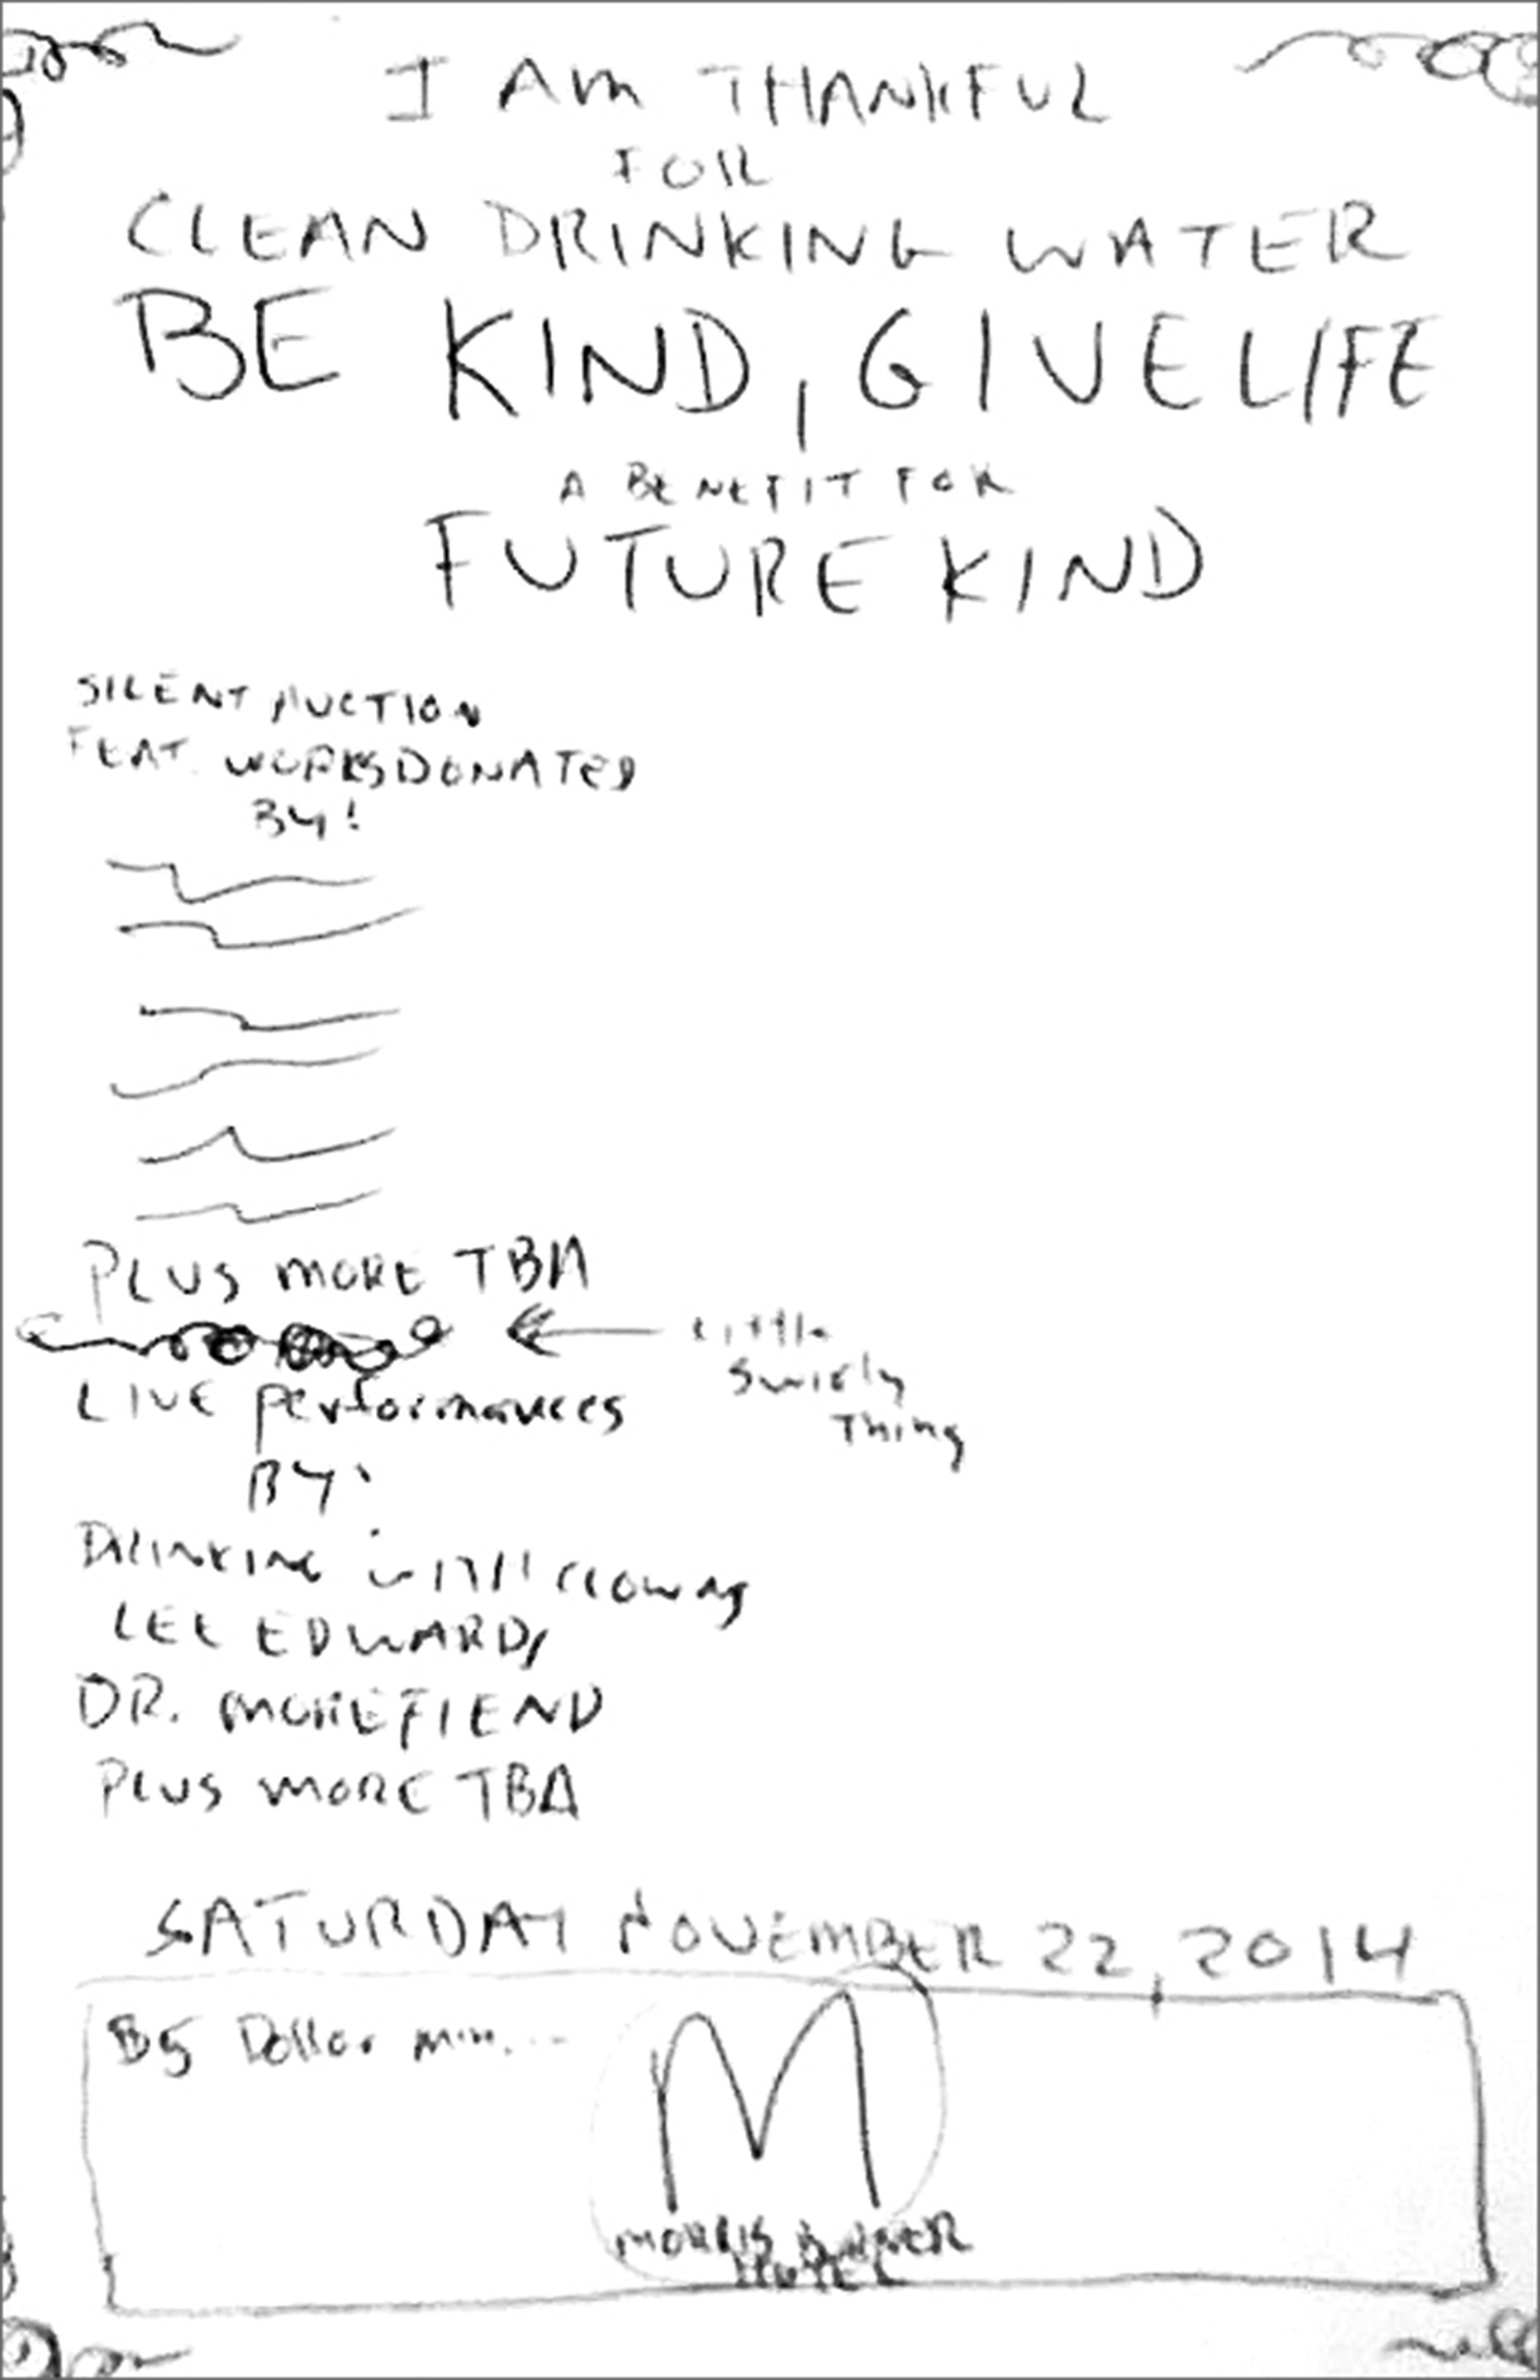 I AM THANKFUL
FOR
CLEAN DRINKING WATER
BE KIND, GIVE LIFE
A BENEFIT FOR
FUTURE KIND
SILENT AUCTION
FEAT. WORKS DONATED
BY:
PLUS MORE TBA
Little
Swirly
Thing
LIVE performances
BY:
DRINKING WITH CLOWNS
LEE EDWARDS
DR. MOREFIEND
PLUS MORE TBA
SATURDAY NOVEMBER 22, 2014
Dollar Min...
M
MORRIS
HOTEL